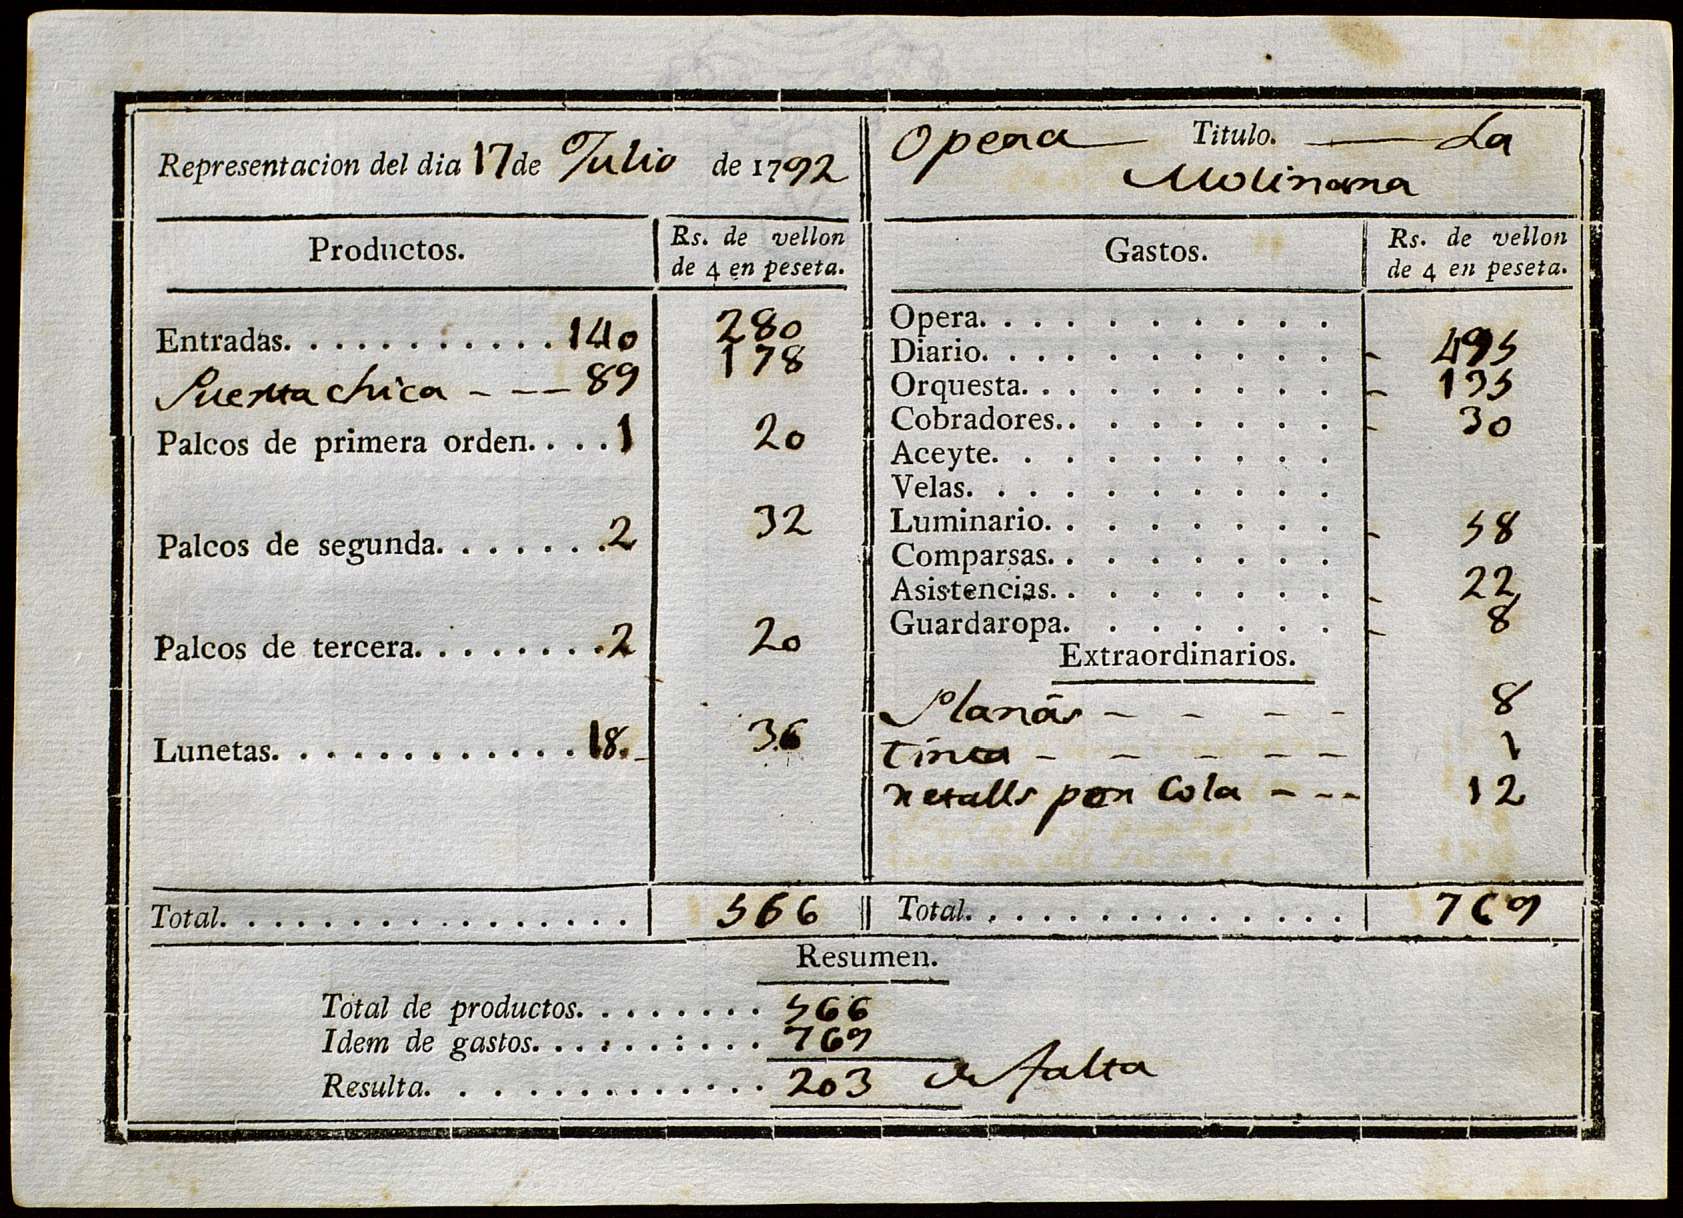 Representacion del dia 17 de Julio de 1792
Productos.
Rs. de vellon
de 4 en peseta.
Entradas. . . . . . . . . . . 140 280
Puerta chica - - - 89 178
Palcos de primera orden. . . . 1 20
Palcos de segunda. . . . . . . 2 32
Palcos de tercera. . . . . . . . 2 20
Lunetas. . . . . . . . . . . . 18. 36
Total. . . . . . . . . . . . . . . . 566
Opera Titulo. La
Molinara
Gastos.
Rs. de vellon
de 4 en peseta.
Opera. . . . . . . . . . .
Diario. . . . . . . . . . . 495
Orquesta. . . . . . . . . . 135
Cobradores. . . . . . . . . 30
Aceyte. . . . . . . . . .
Velas. . . . . . . . . . .
Luminario. . . . . . . . 58
Comparsas. . . . . . . .
Asistencias. . . . . . . . 22
Guardaropa. . . . . . . 8
Extraordinarios.
- - - - 8
Tinta - - - - - 1
por Cola - - - 12
Total. . . . . . . . . . . . . . 769
Resumen.
Total de productos. . . . . . . . 566
Idem de gastos. . . . . . . . . 769
Resulta. . . . . . . . . . . . . 203 de falta